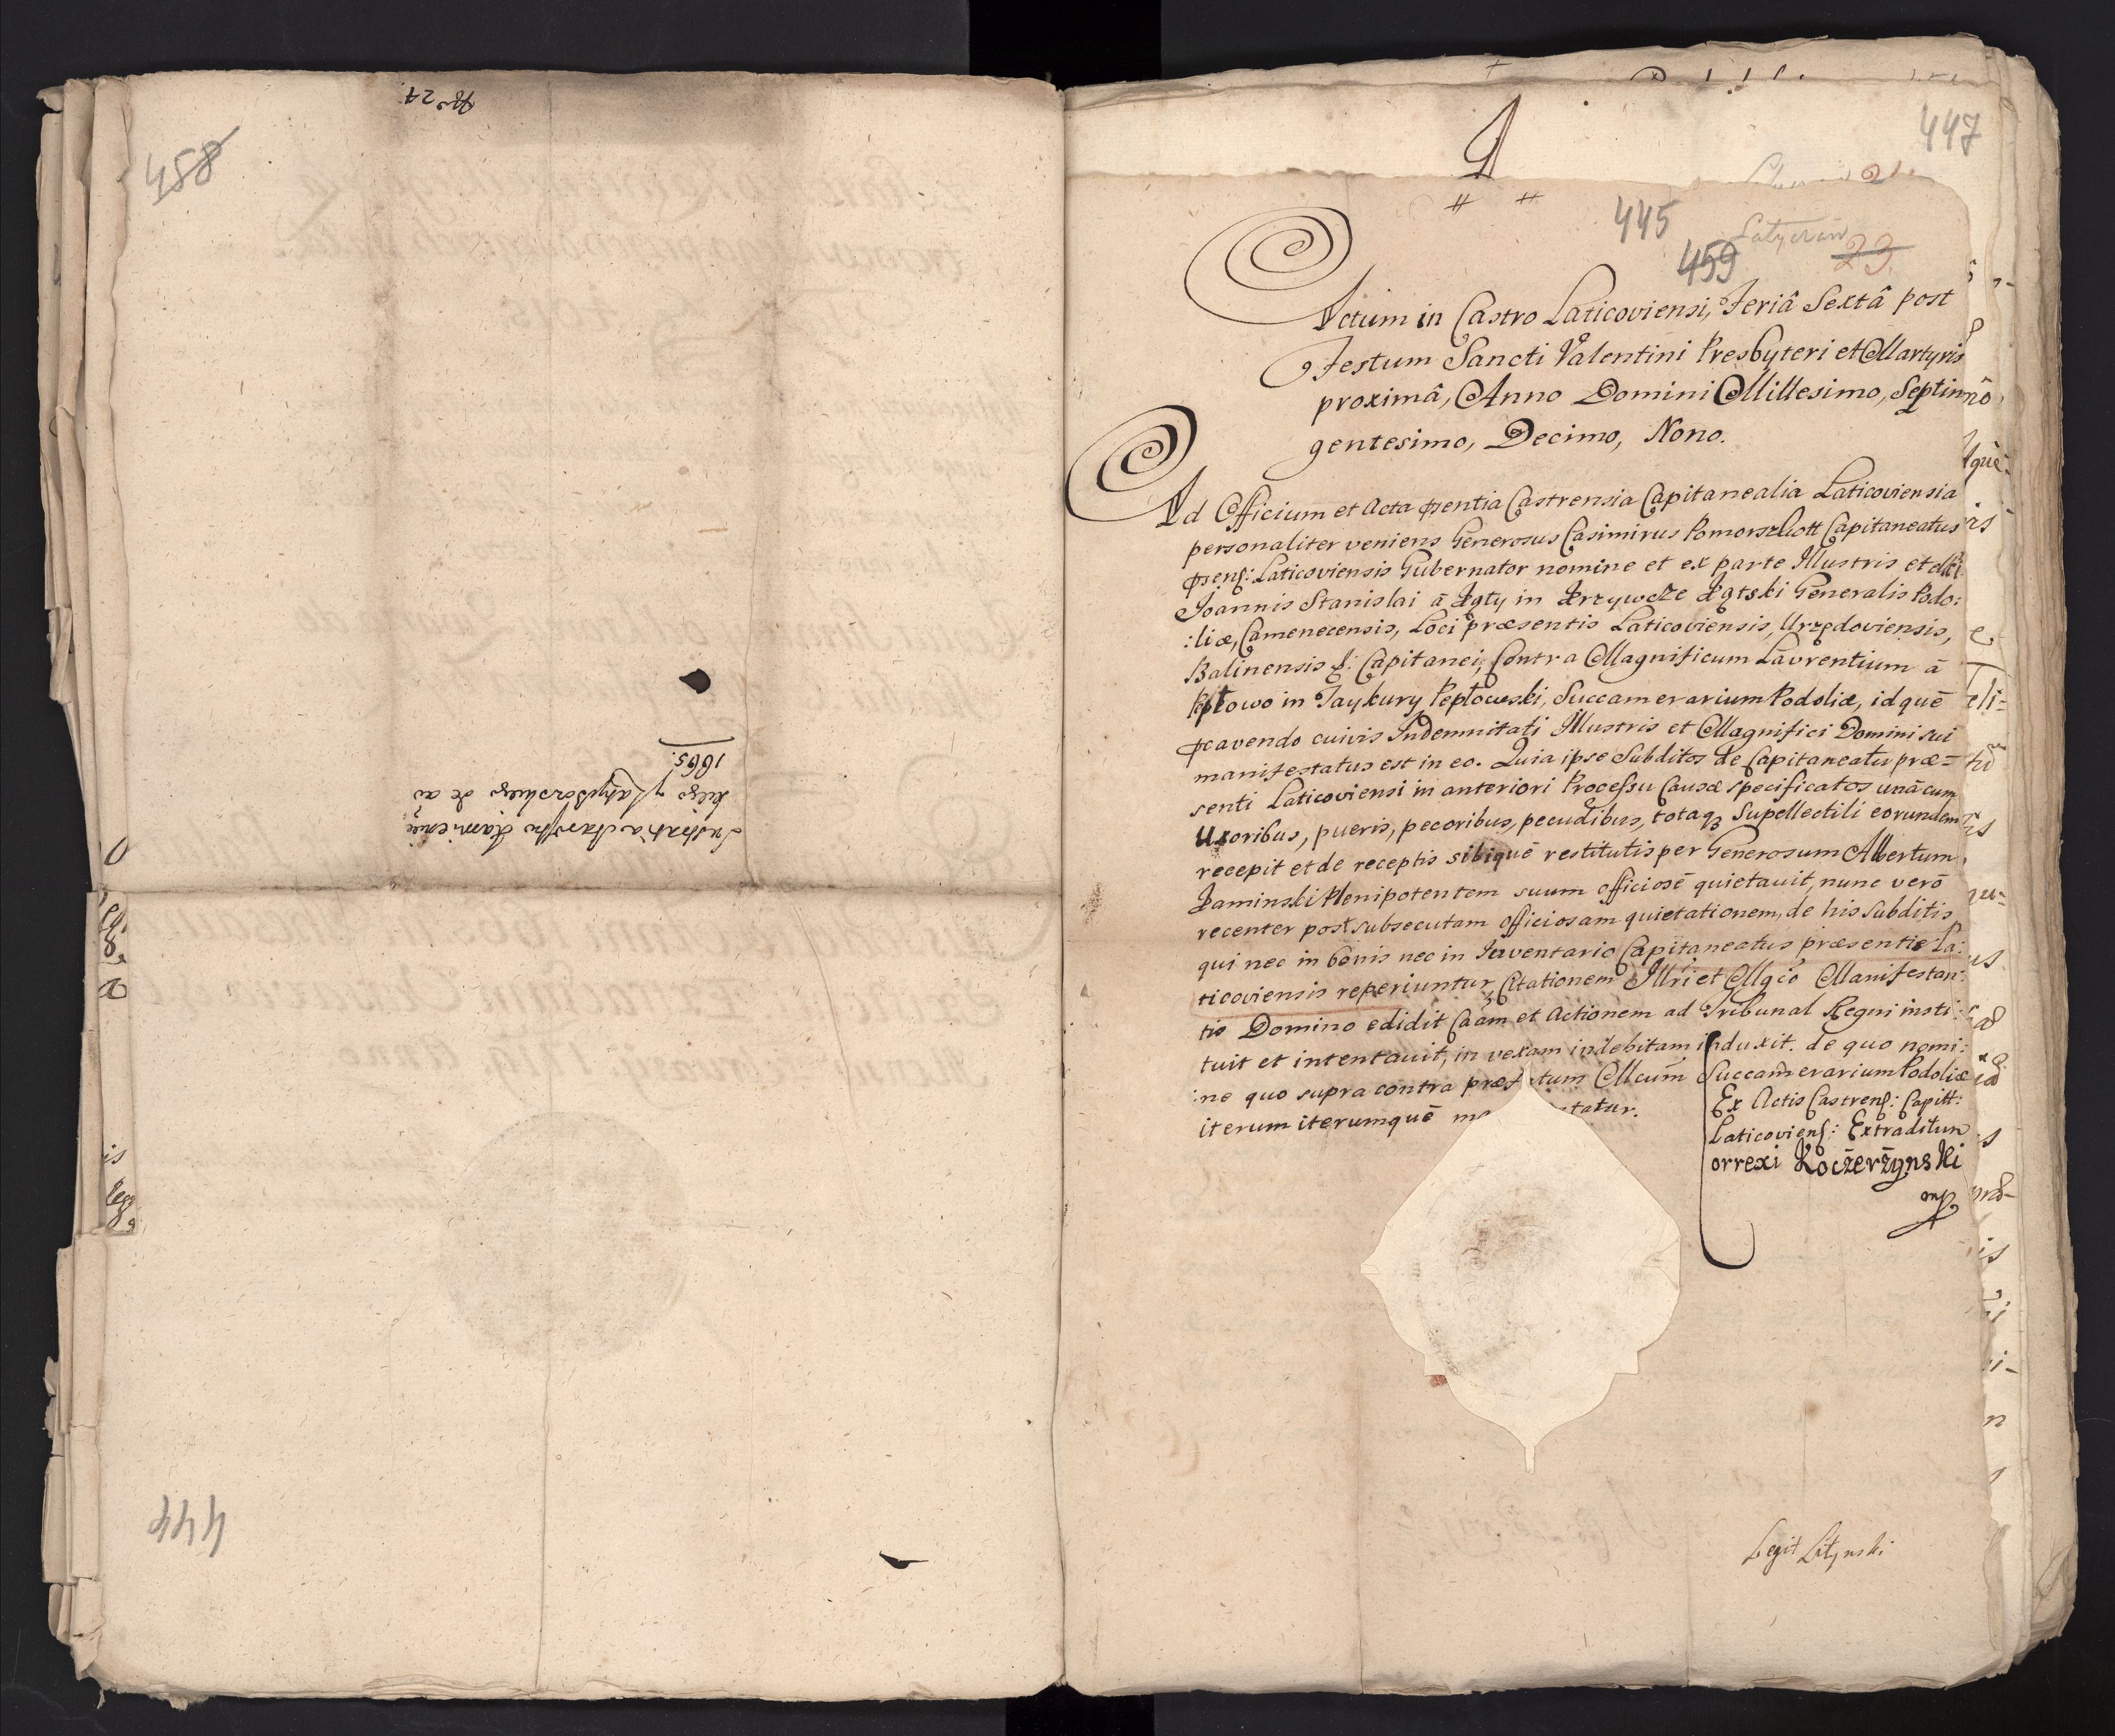 No 24
458
Lustratia Starostw Kamienie
kiego y Latyczowskiego de ao
1665.
444
447
445
459
23.
Actum in Castro Laticoviensi, Feriâ Sextâ post
Festum Sancti Valentini Presbyteri et Martyris
proximâ, Anno Domini Millesimo, Septin
gentesimo, Decimo, Nono.
Ad Officium et Acta pntia Castrensia Capitanealia Laticoviensia
personaliter veniens Generosus Casimirus Pomorszkott Capitaneatus
pnens: Laticoviensis Gubernator nomine et ex parte Illustris et
Joannis Stanislai â Kąty in Krzywcze Kątski Generalis Podo:
:liæ, Camenecensis, Loci præsentis Laticoviensis, Urzędoviensis,
Balinensis &: Capitanei, Contra Magnificum Laurentium â
Peplowo in Jaykury Peplowski, Succamerarium Podoliæ, idquē
præcavendo cuivis Indemnitati Illustris et Magnifici Domini sui
manifestatus est in eo. Quia ipse Subditos de Capitaneatu præ=
senti Laticoviensi in anteriori Processu Causæ specificatos unâcum
Uxoribus, pueris, pecoribus, pecudibus, totaq3 Supellectili eorundem
recepit et de receptis sibiquē restitutis per Generosum Albertum
Kaminski Plenipotentem suum officiosē quietavit, nunc verō
recenter post subsecutam officiosam quietationem, de his Subditis
qui nec in bonis nec in Inventario Capitaneatus præsentis La:
ticoviensis reperiuntur, Citationem Illri et Mgco Manifestan:
tis Domino edidit Caam et Actionem ad Tribunal Regni insti:
tuit et intentauit, in vexam indebitam induxit. de quo nomi:
:ne quo supra contra præf tum Mcum Succamerarium Podoliæ
iterum iterumquē ma statur.
Ex Actis Castrens: Capitt:
Laticoviens: Extraditum
orrexi Koczerżynski
mp
Legit Litynski